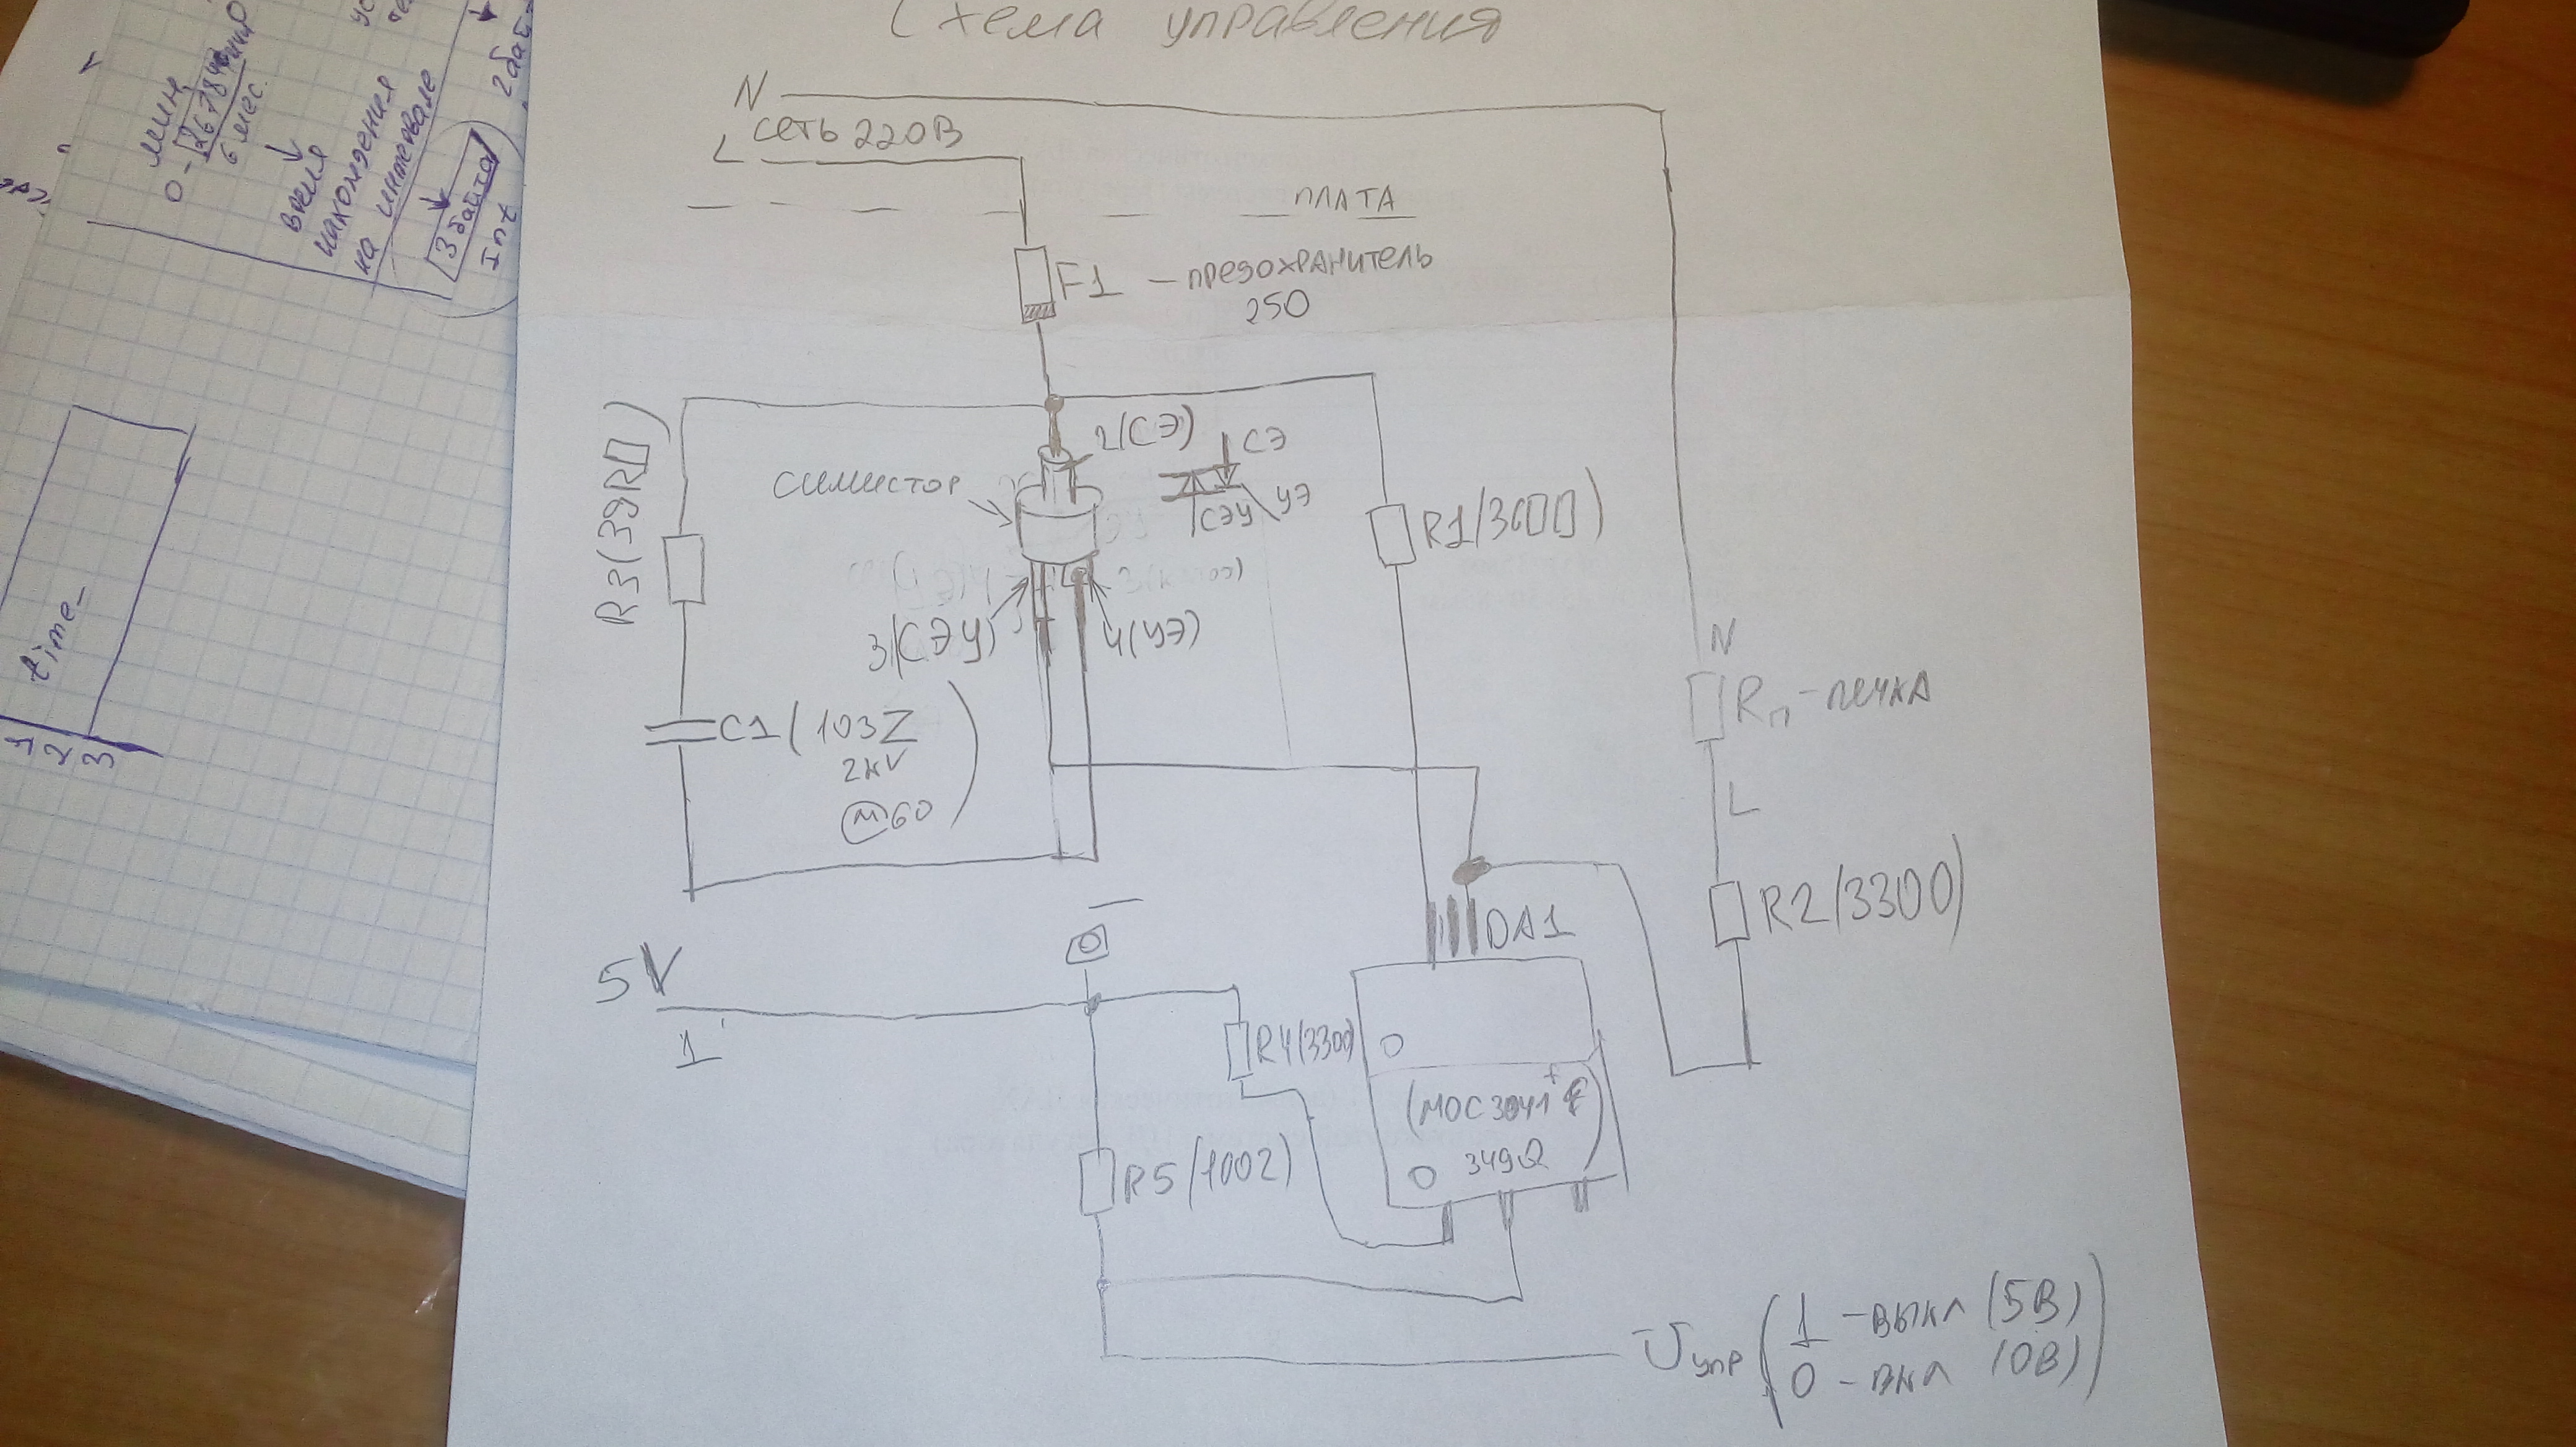 Схема управления
N
сеть 220В
L
ПЛАТА
F1 — предохранитель
250
2(СЭ)
СЭ
симистор
СЭУ
УЭ
R3(39R0)
R1(3600)
3(СЭУ)
4(УЭ)
N
Rп - печка
C1(103Z
2kV
m60)
L
R2(3300)
DA1
5V
1
R4(3300)
(MOC3041
349Q)
R5(1002)
Uупр (1 - выкл (5В)
0 - вкл (0В))
мин
0-
6 мес.
время
нахождения
на интервале
3 байта
Int
2 бай
time_
1
2
3